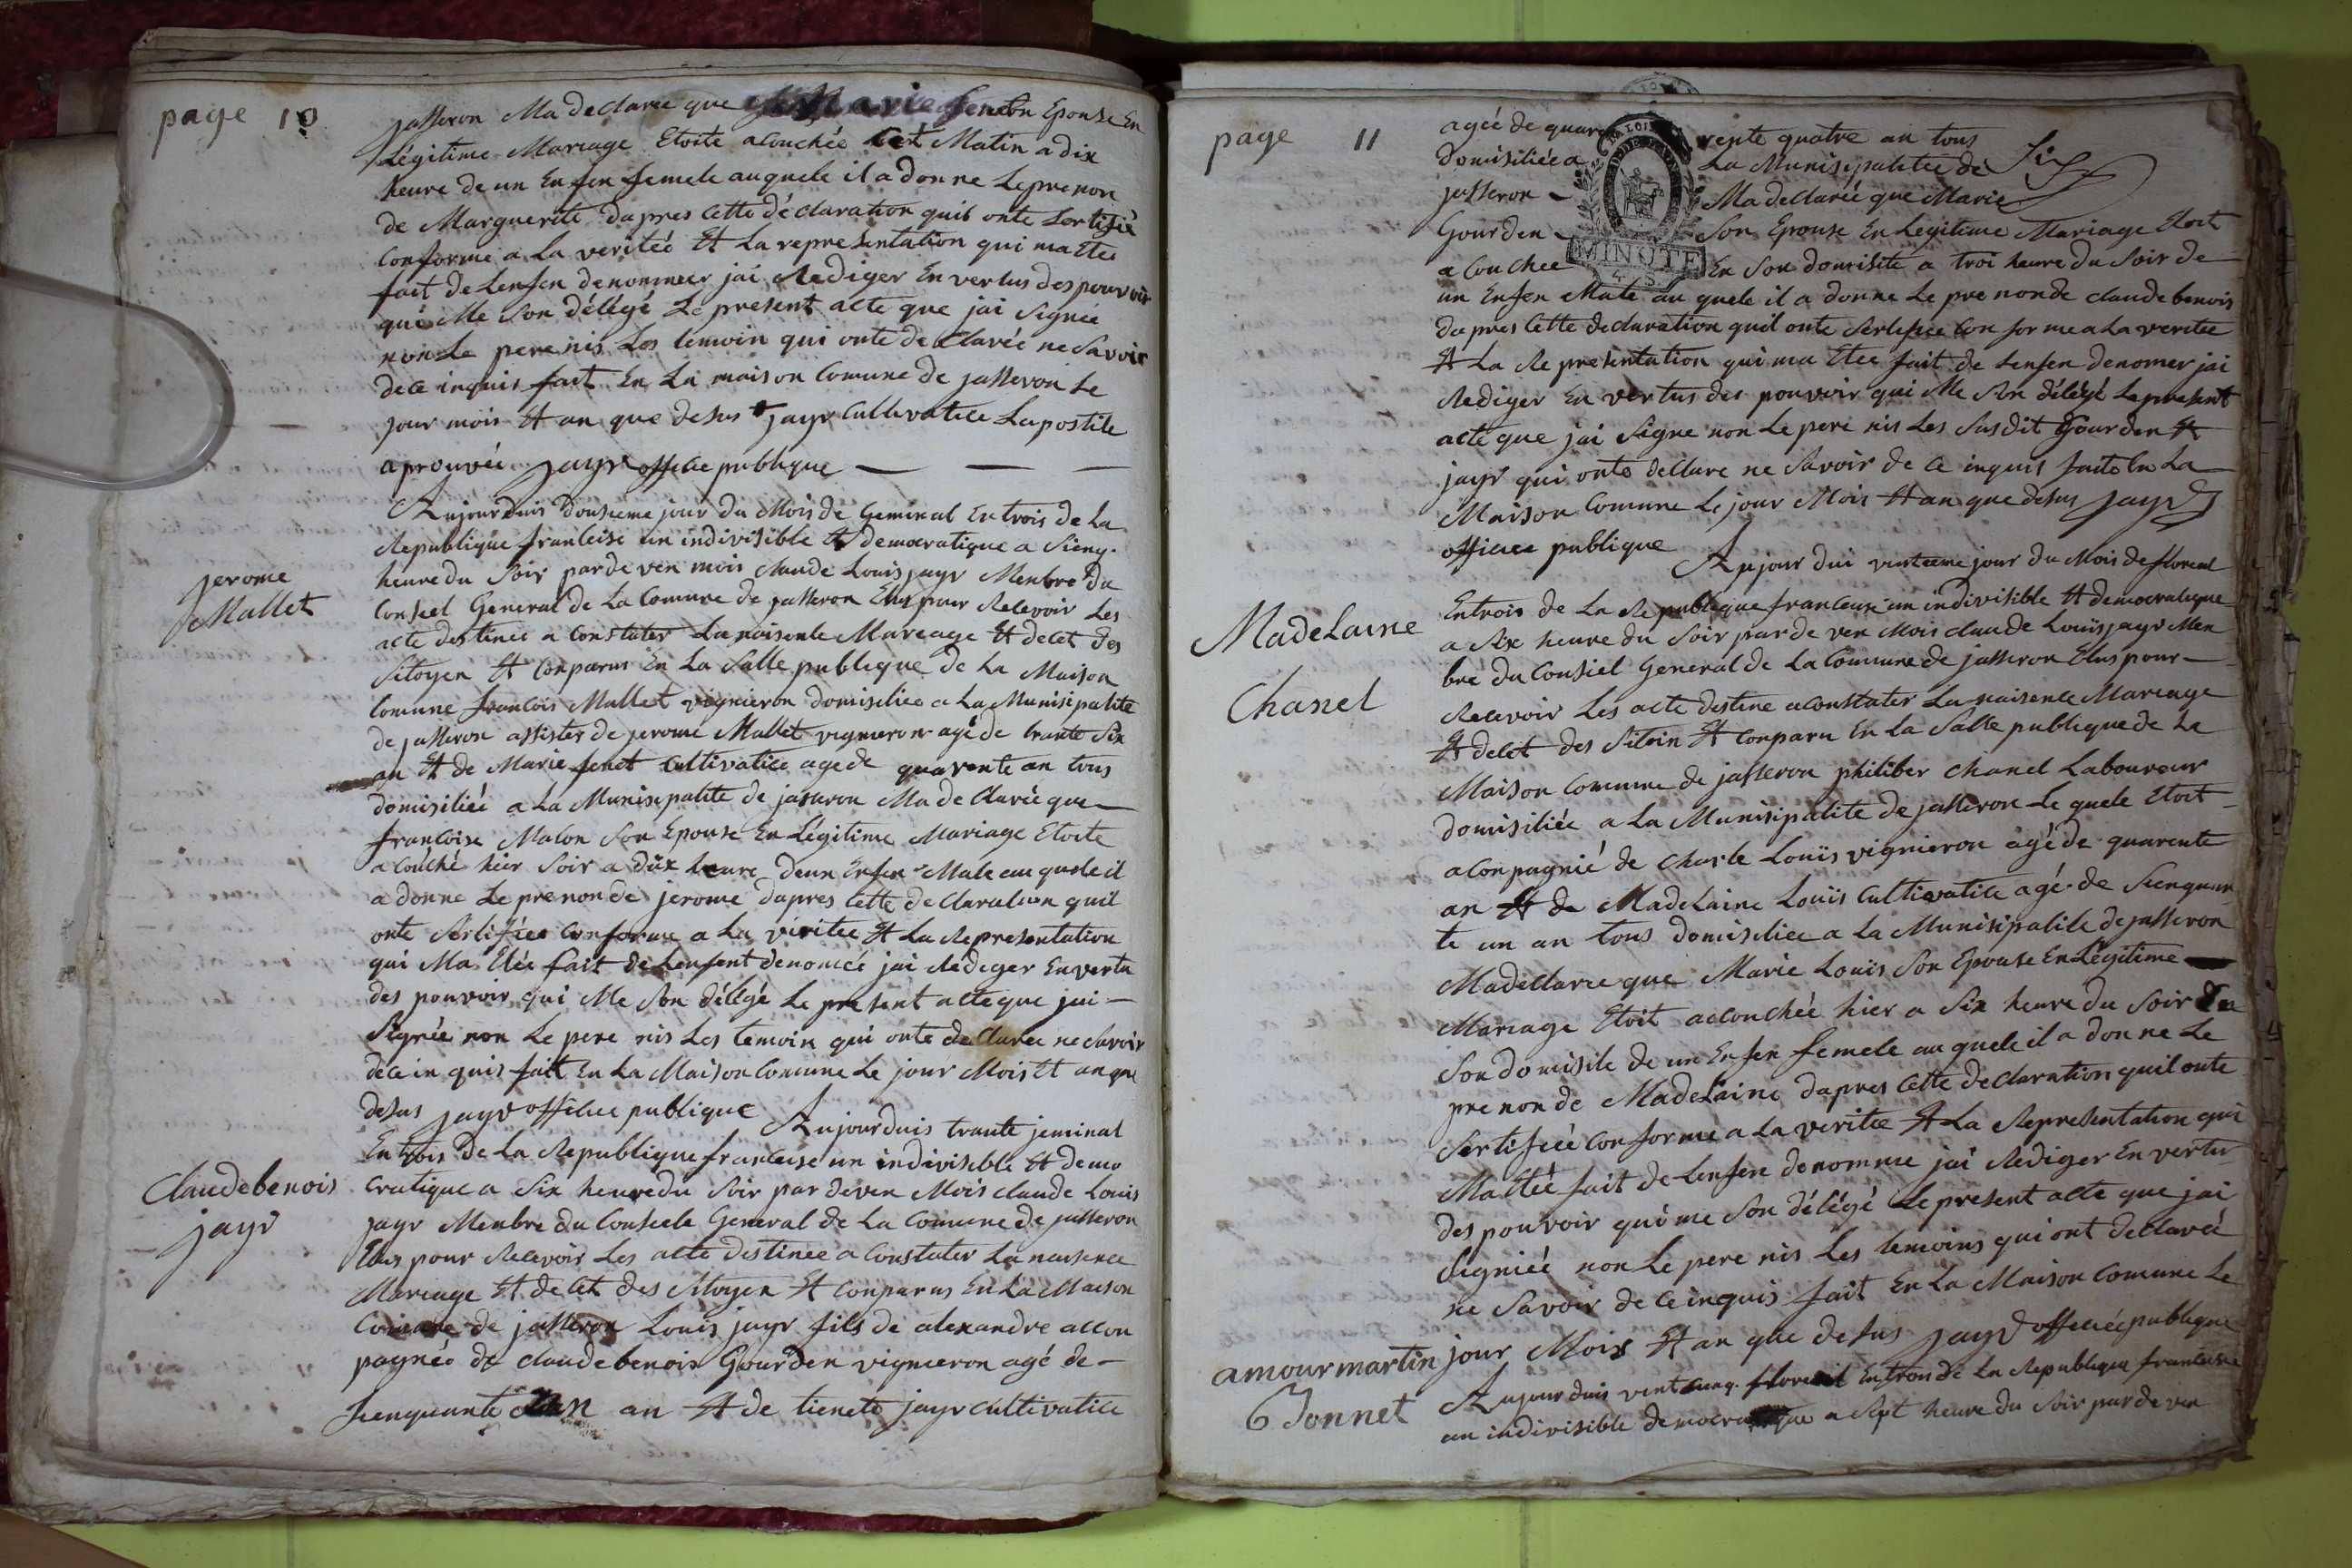 page 10
jasseron Ma declaree que Marie feneon Epouse En
Légitime Mariage Etoité acouchée cet Matin a dix
heure de un Enfen femele auquele il a donne Leprenon
de Marguerite dapres Cette déclaration quil onte Sertifié
Conforme a La veriteé Et La representation qui ma Etee
fait de Lenfen denommer jai Rediger En vertus des pouvoir
qui Me Son délégé Le present acte que jai Signée
non Le pere nis Les temoin qui onte de Claréé ne Savoir
de ce inquis fait En La maison Comune de jasseron Le
jour mois Et an que desus jayr Cultivatice Lapostile
aprouvée jayr officie publique
Aujourduis dousieme jour du Mois de Geminal En trois de La
Republique franceise un indivisible Et democratique a Sienq
heure du Soir parde ven mois claude Louis jayr Menbre du
Conseel General de La Comune de jasseron Elus pour Relevoir Les
acte destinee a Constater La naisente Mareage Et decet des
Sitoyen Et Conparus En La Salle publique de La Maison
Comune francois Mallet vignieron domisiliee a La Munisipalite
de jasseron assister de jerome Mallet vignieron agé de trante Six
an Et de Marie fenet Cultivatice agede quarente an tous
domisiliéé a La Munisipalite de jasseron Ma de Clarée que
francoise Malon Son Epouse En Légitime Mariage Etoite
acouché hier Soir a dix heure deun Enfen Male auquele il
a donne Le prenon de jerome dapres Cette de Claration quil
onte Sertifiee Conforme a La viritee Et La Representation
qui Ma Etée fait de Lenfent denomée jai Rediger En vertu
des pouvoir qui Me Son délégé Le present acte que jai
Signée non Le pere nis Les temoin qui onte de Claree ne Savoir
de ce in quis fait En La Maison Comune Le jour Mois Et an que
desus jayr officiee publique Aujourduis trante jeminal
En trois De La Republique franceise un indivisible Et demo
Cratique a Six heure du Soir par deven Mois claude Louis
jayr Menbre du Conseele General de La Comune de jasseron
Elus pour Recevoir Les acte destinee a Constater La naisence
Mariage Et de Cet des Sitoyen Et Conparus En La Maison
Comune de jasseron Louis jayr fils de alexandre accon
pagnéé de claude benois Gourden vignieron agé de
Sienquante an Et de tienete jayr cultivatice
jerome
Mallet
Claude benois
jayr
page 11
agéé de quar rente quatre an tous
domisiliée a La Munisipalitee de
jasseron Ma declareé que Marie
Gourden Son Epouse En Legitime Mariage Etoit
a Couchee En Son domisile a troi heure du Soir de
MINUTE
un Enfen Male au quele il a donne Le pre nonde claude benois
dapres Cette declaration quil onte Sertifiee Con forme a La veritee
Et La Re presentation qui ma Etee fait de Lenfen denomer jai
Rediger En vertus des pouvoir qui Me Son délégé Le present
acte que jai Signe non Le pere nis Les Susdit Gourden Et
jayr qui onte declare ne Savoir de ce inquis faite En La
Maison Comune Le jour Mois Et an que desus jayr
officiee publique Aujour dui vintieme jour du Mois de floreal
Entrois de La Republique franceise un indivisible Et democratique
a Six heure du Soir parde ven Mois claude Louis jayr Men
bre du Consiel General de La Comune de jasseron Elus pour
Relevoir Les acte destine a Constater La naisence Mareage
Et delet des Sitoin Et Conparu En La Salle publique de La
Maison Comune de jasseron philiber chanel Laboureur
domisiliée a La Munisipalite de jasseron Le quele Etoit
aconpagnié de charle Louis vignieron agé de quarente
an Et de MadeLaine Louis Cultivatice agé de Sienquan
te un an tous domisiliee a La Munisipalite de jasseron
Madeclaree que Marie Louis Son Epouse En Légitime
Mariage Etoit accouchée hier a Six heure du Soir En
Son domisile de un Enfen femele au quele il a donne Le
prenon de MadeLaine dapres Cette déclaration quil onte
Sertifieé Conforme a La veritee Et La Representation qui
Ma Etéé fait de Lenfen denomme jai Rediger En vertu
des pouvoir qui me Son délégé Le present acte que jai
Signiéé non Le pere nis Les temoins qui ont declareé
ne Savoir de ce inquis fait En La Maison Comune Le
jour Mois Et an que desus jayr officiéé publique
Aujourduis vent cinq floreal Entron de La Republique franceise
un indivisible democratique a Sept heure du Soir parde ven
MadeLaine
Chanel
amour martin
Bonnet